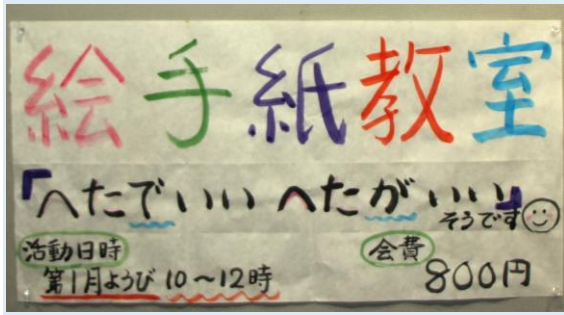 絵手紙教室
「へたでいい へたがいい」
そうです
活動日時
第1月ようび 10〜12時
会費
800円